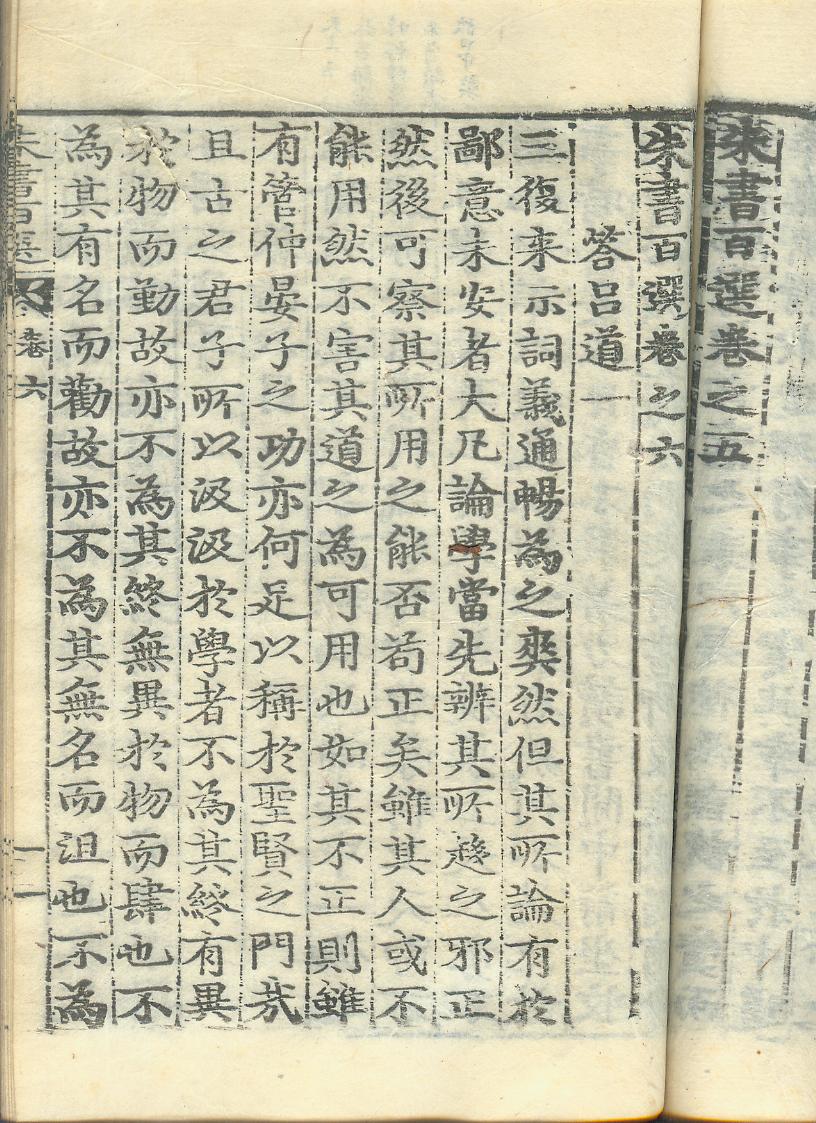 朱書百選卷之五
朱書百選卷之六
答呂道一
三復来示詞義通暢為之爽然但其所論有於
鄙意未安者大凡論學當先辨其所趍之邪正
然後可察其所用之能否苟正矣雖其人或不
能用然不害其道之為可用也如其不正則雖
有管仲晏子之功亦何足以稱於聖賢之門哉
且古之君子所以汲汲於學者不為其終有異
於物而勤故亦不為其終無異於物而肆也不
為其有名而勸故亦不為其無名而沮也不為
朱書百選 卷六 一